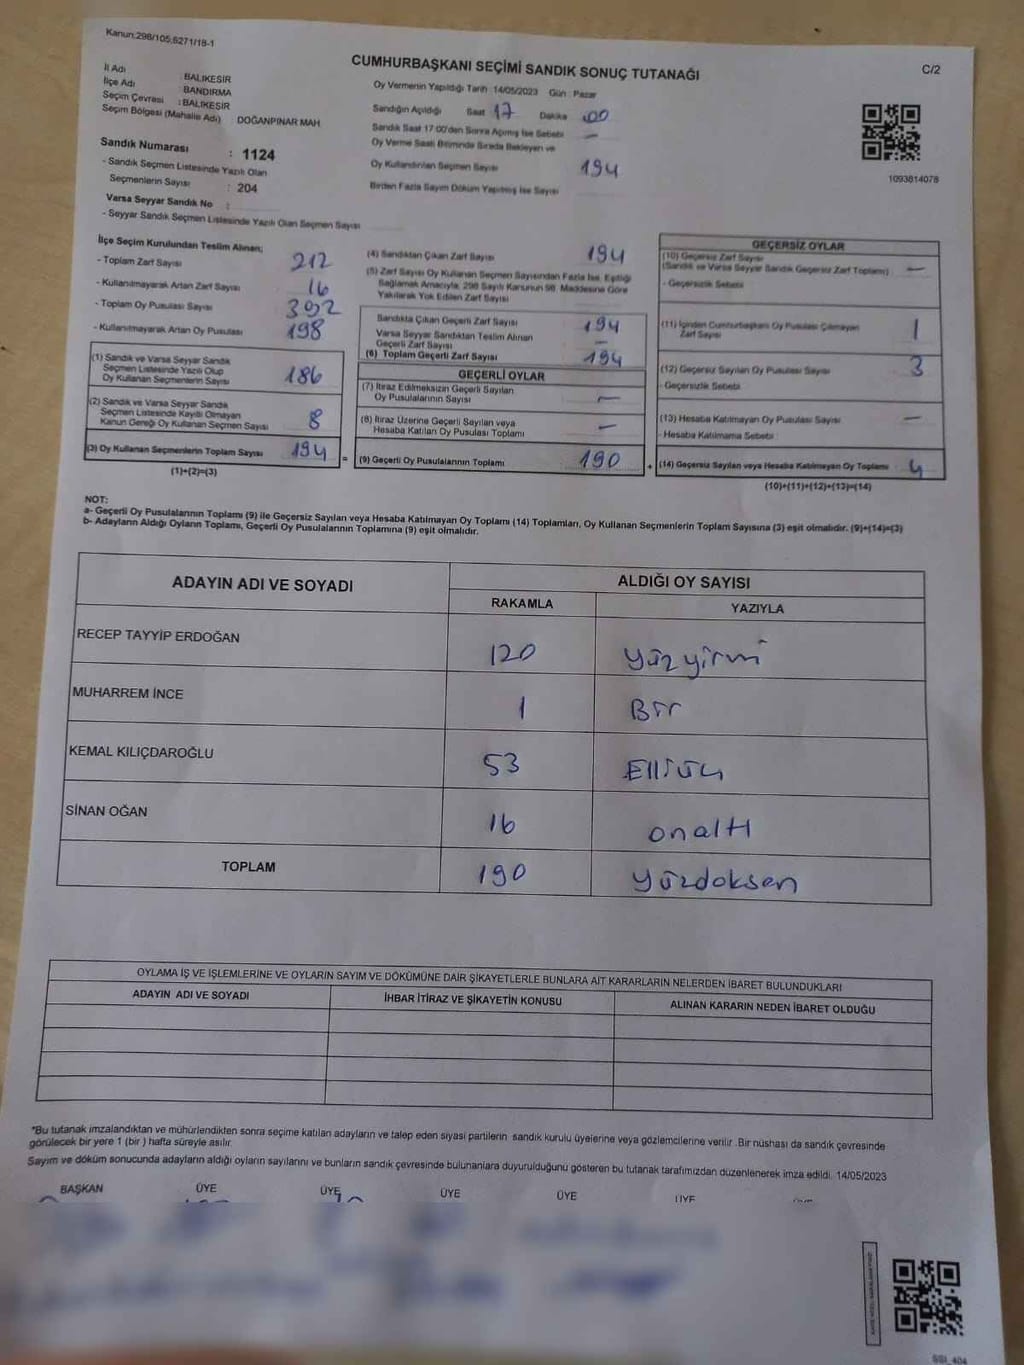 Kanun:298/105;6271/18-1
CUMHURBAŞKANI SEÇİMİ SANDIK SONUÇ TUTANAĞI
C/2
İl Adı : BALIKESİR
İlçe Adı : BANDIRMA
Seçim Çevresi : BALIKESİR
Seçim Bölgesi (Mahalle Adı) : DOĞANPINAR MAH.
Oy Vermenin Yapıldığı Tarih :14/05/2023 Gün : Pazar
Sandığın Açıldığı Saat 17 Dakika 00
Sandık Saat 17:00'den Sonra Açılmış İse Sebebi —
Oy Verme Saati Bitiminde Sırada Bekleyen ve
Oy Kullandırılan Seçmen Sayısı 194
Birden Fazla Sayım Döküm Yapılmış İse Sayısı
1093814078
Sandık Numarası : 1124
- Sandık Seçmen Listesinde Yazılı Olan
Seçmenlerin Sayısı : 204
Varsa Seyyar Sandık No :
- Seyyar Sandık Seçmen Listesinde Yazılı Olan Seçmen Sayısı
İlçe Seçim Kurulundan Teslim Alınan;
- Toplam Zarf Sayısı 212
- Kullanılmayarak Artan Zarf Sayısı 16
- Toplam Oy Pusulası Sayısı 392
- Kullanılmayarak Artan Oy Pusulası 198
(1) Sandık ve Varsa Seyyar Sandık
Seçmen Listesinde Yazılı Olup
Oy Kullanan Seçmenlerin Sayısı 186
(2) Sandık ve Varsa Seyyar Sandık
Seçmen Listesinde Kayıtlı Olmayan
Kanun Gereği Oy Kullanan Seçmen Sayısı 8
(3) Oy Kullanan Seçmenlerin Toplam Sayısı 194
(1)+(2)=(3)
(4) Sandıktan Çıkan Zarf Sayısı 194
(5) Zarf Sayısı Oy Kullanan Seçmen Sayısından Fazla İse, Eşitliği
Sağlamak Amacıyla, 298 Sayılı Kanunun 98. Maddesine Göre
Yakılarak Yok Edilen Zarf Sayısı
Sandıkta Çıkan Geçerli Zarf Sayısı 194
Varsa Seyyar Sandıktan Teslim Alınan
Geçerli Zarf Sayısı —
(6) Toplam Geçerli Zarf Sayısı 194
GEÇERLİ OYLAR
(7) İtiraz Edilmeksizin Geçerli Sayılan
Oy Pusulalarının Sayısı —
(8) İtiraz Üzerine Geçerli Sayılan veya
Hesaba Katılan Oy Pusulası Toplamı —
= (9) Geçerli Oy Pusulalarının Toplamı 190
GEÇERSİZ OYLAR
(10) Geçersiz Zarf Sayısı
(Sandık ve Varsa Seyyar Sandık Geçersiz Zarf Toplamı) —
- Geçersizlik Sebebi
(11) İçinden Cumhurbaşkanı Oy Pusulası Çıkmayan
Zarf Sayısı 1
(12) Geçersiz Sayılan Oy Pusulası Sayısı 3
- Geçersizlik Sebebi
(13) Hesaba Katılmayan Oy Pusulası Sayısı —
- Hesaba Katılmama Sebebi
+ (14) Geçersiz Sayılan veya Hesaba Katılmayan Oy Toplamı 4
(10)+(11)+(12)+(13)=(14)
NOT:
a- Geçerli Oy Pusulalarının Toplamı (9) ile Geçersiz Sayılan veya Hesaba Katılmayan Oy Toplamı (14) Toplamları, Oy Kullanan Seçmenlerin Toplam Sayısına (3) eşit olmalıdır. (9)+(14)=(3)
b- Adayların Aldığı Oyların Toplamı, Geçerli Oy Pusulalarının Toplamına (9) eşit olmalıdır.
ADAYIN ADI VE SOYADI
ALDIĞI OY SAYISI
RAKAMLA YAZIYLA
RECEP TAYYİP ERDOĞAN 120 Yüzyirmi
MUHARREM İNCE 1 Bir
KEMAL KILIÇDAROĞLU 53 Elliüç
SİNAN OĞAN 16 onaltı
TOPLAM 190 Yüzdoksan
OYLAMA İŞ VE İŞLEMLERİNE VE OYLARIN SAYIM VE DÖKÜMÜNE DAİR ŞİKAYETLERLE BUNLARA AİT KARARLARIN NELERDEN İBARET BULUNDUKLARI
ADAYIN ADI VE SOYADI İHBAR İTİRAZ VE ŞİKAYETİN KONUSU ALINAN KARARIN NEDEN İBARET OLDUĞU
*Bu tutanak imzalandıktan ve mühürlendikten sonra seçime katılan adayların ve talep eden siyasi partilerin sandık kurulu üyelerine veya gözlemcilerine verilir .Bir nüshası da sandık çevresinde
görülecek bir yere 1 (bir ) hafta süreyle asılır.
Sayım ve döküm sonucunda adayların aldığı oyların sayılarını ve bunların sandık çevresinde bulunanlara duyurulduğunu gösteren bu tutanak tarafımızdan düzenlenerek imza edildi. 14/05/2023
BAŞKAN ÜYE ÜYE ÜYE ÜYE ÜYE